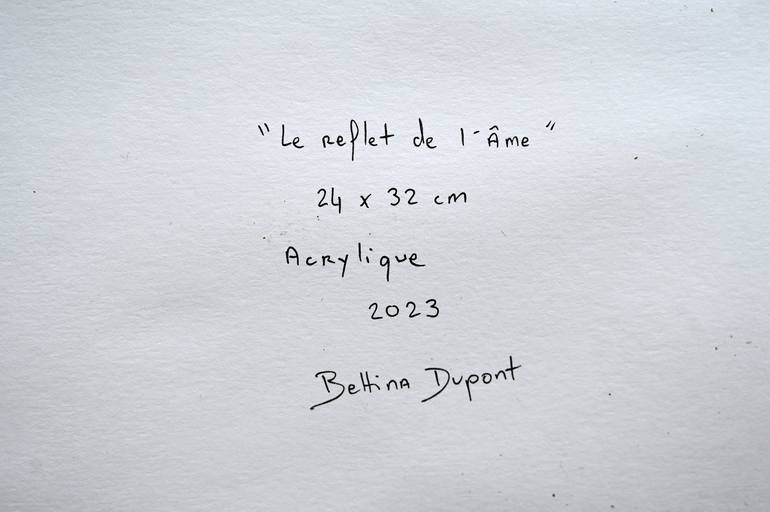 "Le reflet de l'Âme"
24 x 32 cm
Acrylique
2023
Bettina Dupont